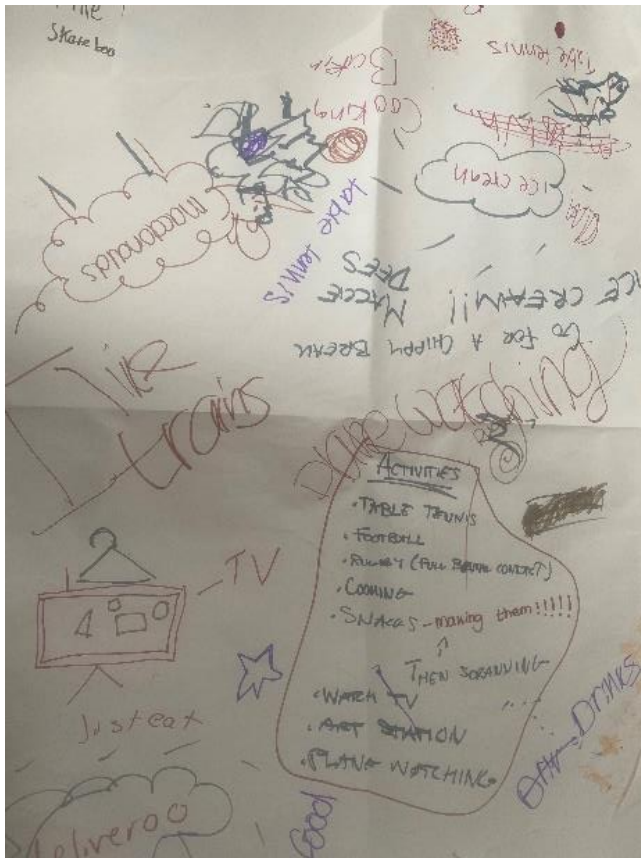 Skateboa
Table tennis
Cooking
ice cream
macdonalds
table tennis
ICE CREAM!!
MACCIE
DEES
GO FOR A CHIPPY BREAK
I like
trains
plane watching
ACTIVITIES
• TABLE TENNIS
• FOOTBALL
• RUGBY (FULL BRUTAL CONTACT)
• COOKING
• SNACKS - making them!!!!!
THEN SCRANNING
• WATCH TV
• ART STATION
• PLANE WATCHING
TV
Just eat
deliveroo
Good
DRINKS